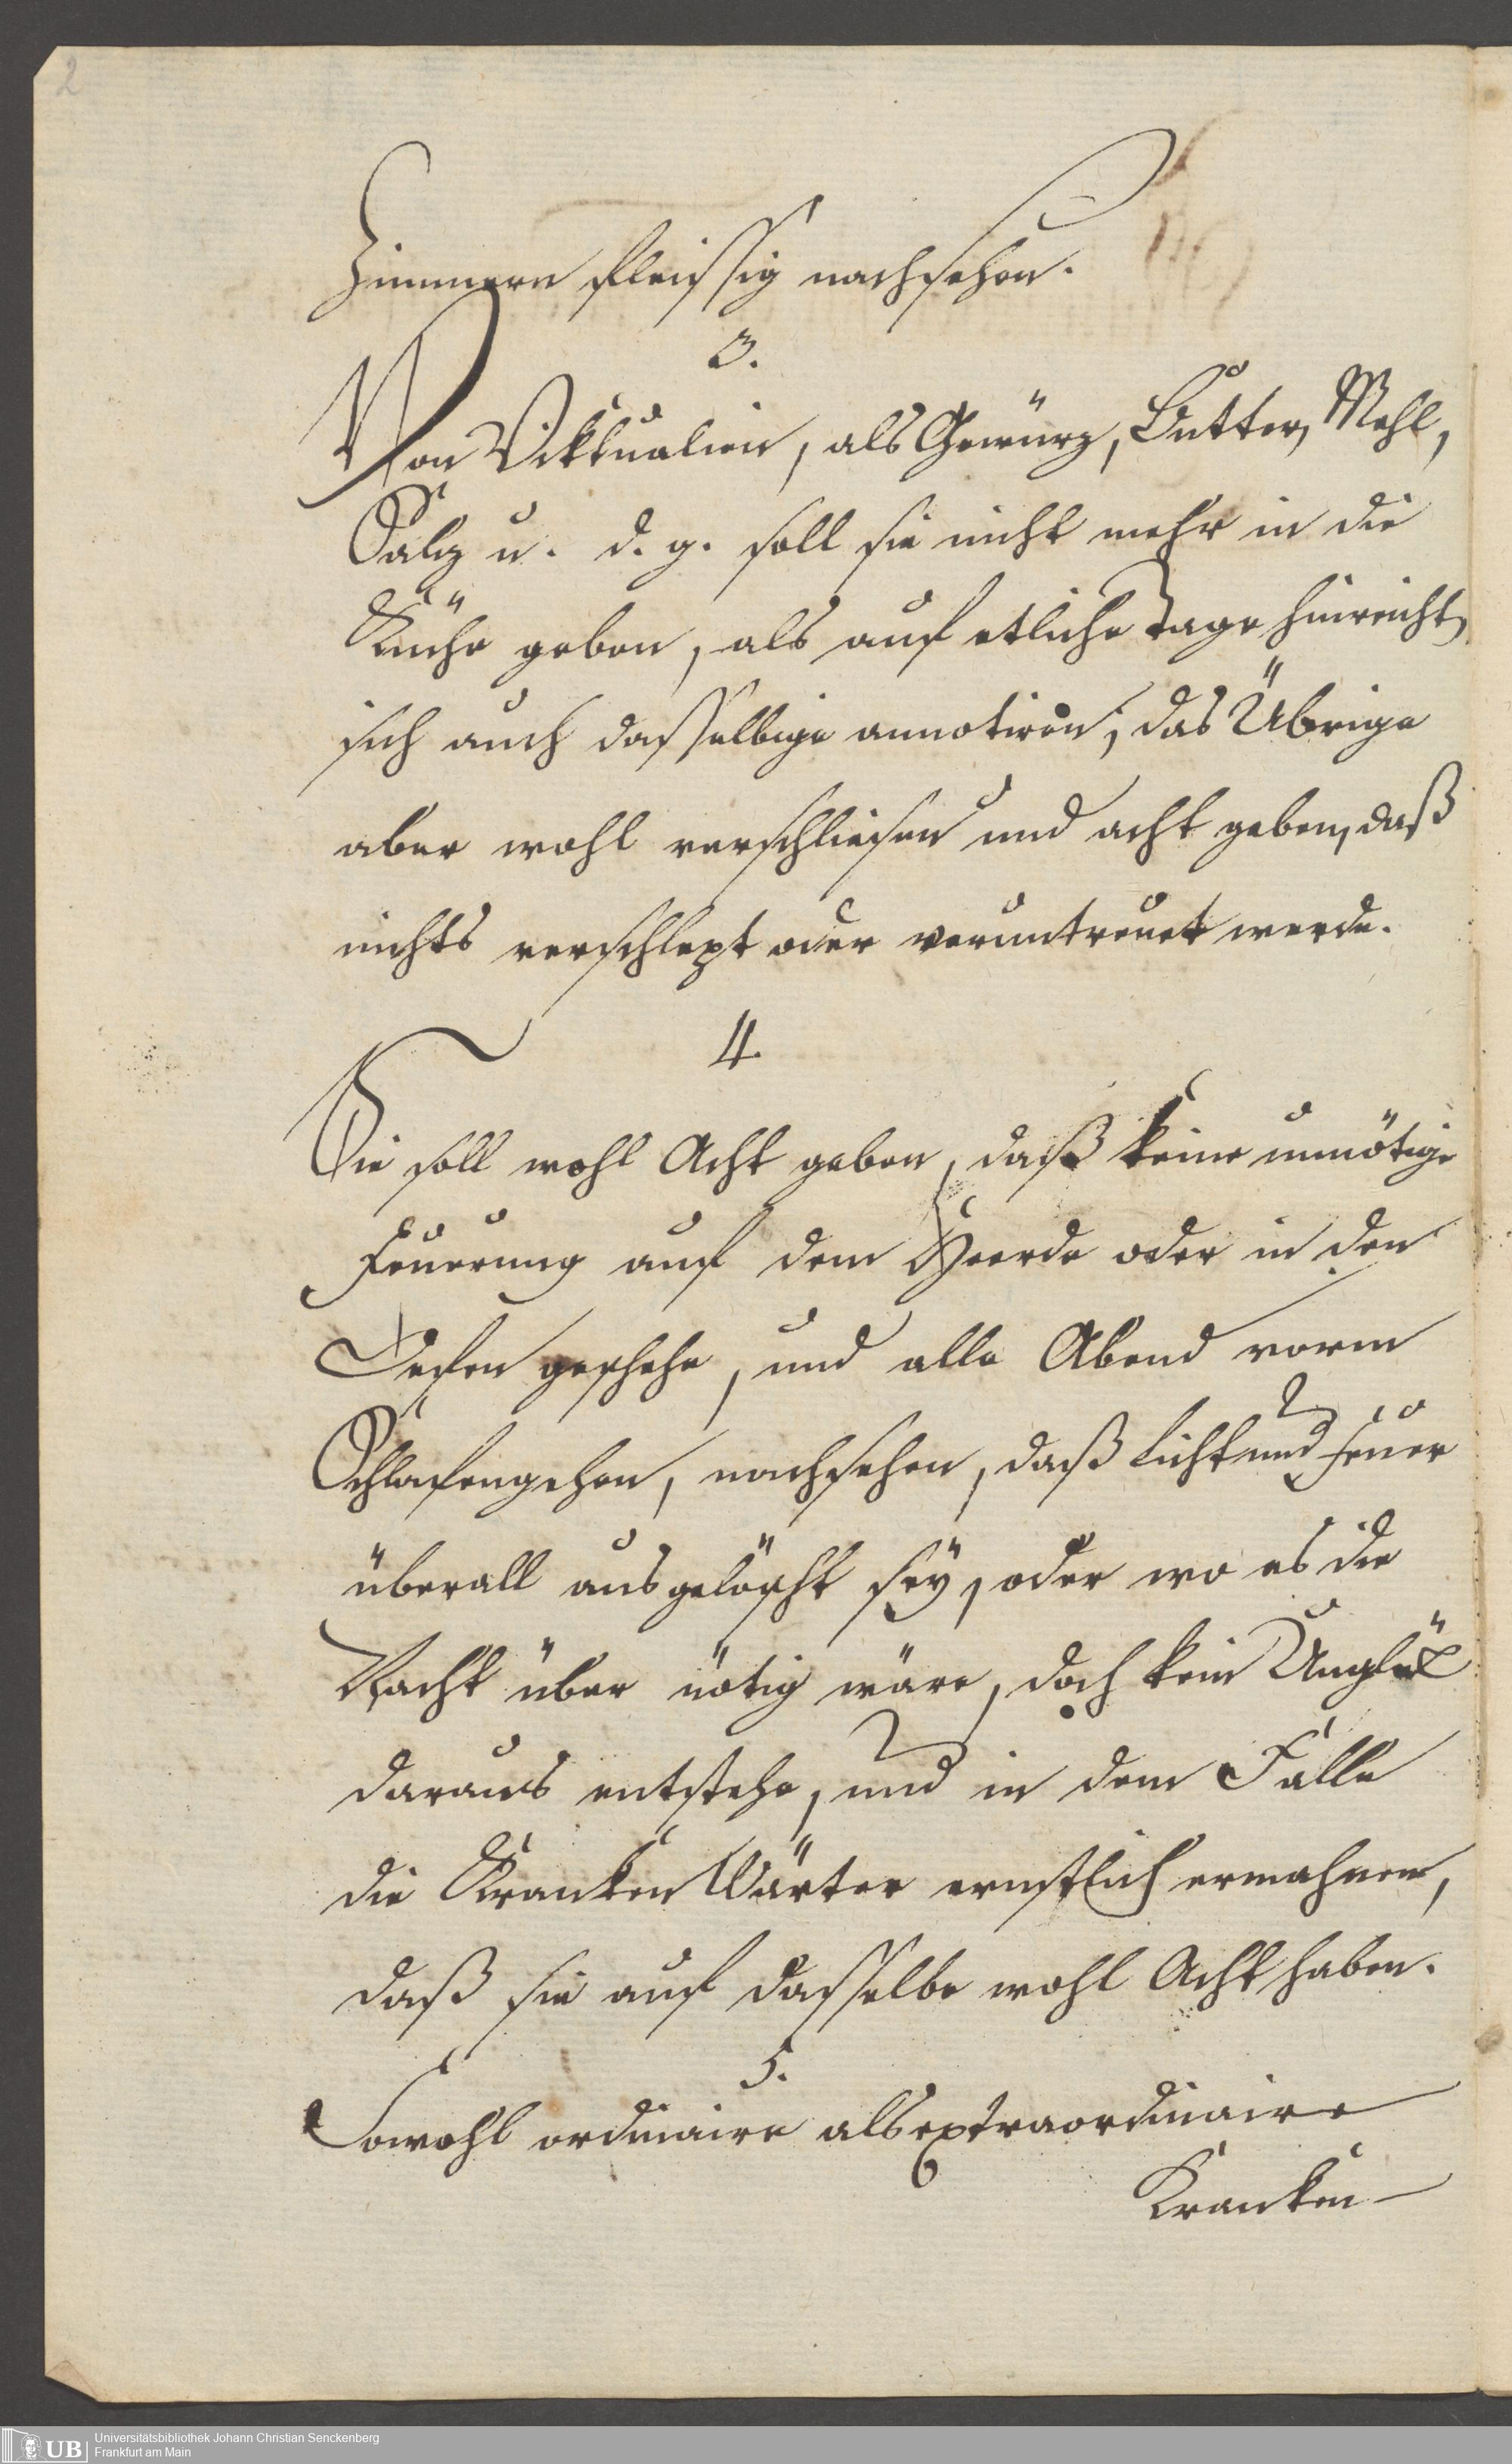 2
Zimmern fleissig nachsehen.
3.
Von Viktualien, als Gewürz, Butter, Mehl,
Salz u. d. g. soll sie nicht mehr in die
Küche geben, als auf etliche Tage hinreicht,
sich auch dasselbige annotiren, das Übrige
aber wohl verschliesen und acht geben, daß
nichts verschlept oder veruntreuet werde.
4.
Sie soll wohl Acht geben, daß keine unnötige
Feuerung auf dem Heerde oder in den
Oefen geschehe, und alle Abend vorm
Schlafengehen, nachsehen, daß Licht und Feuer
überall ausgelöscht seÿ, oder wo es die
Nacht über nötig wäre, doch kein Unglük
daraus entstehe, und in dem Falle
die Kranken Wärter ernstlich ermahnen,
daß sie auf dasselbe wohl Acht haben.
5.
Sowohl ordinaire als extraordinaire
Kranken-
UB
Universitätsbibliothek Johann Christian Senckenberg
Frankfurt am Main